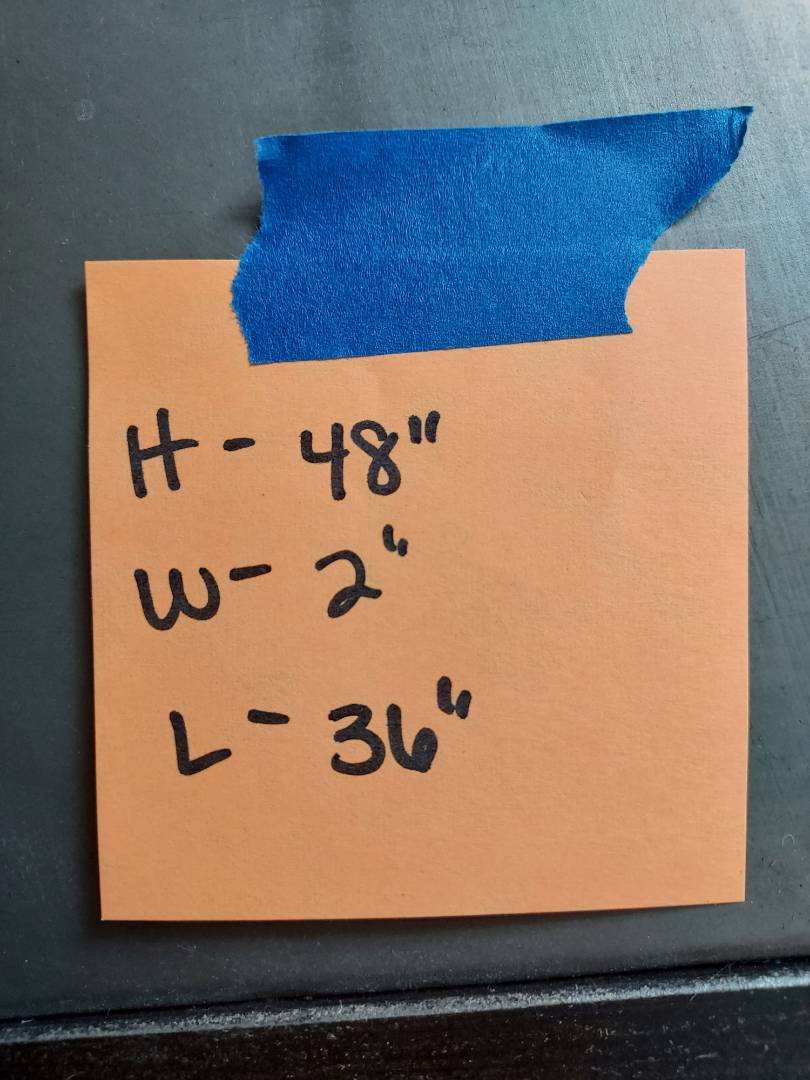 H - 48"
W - 2"
L - 36"